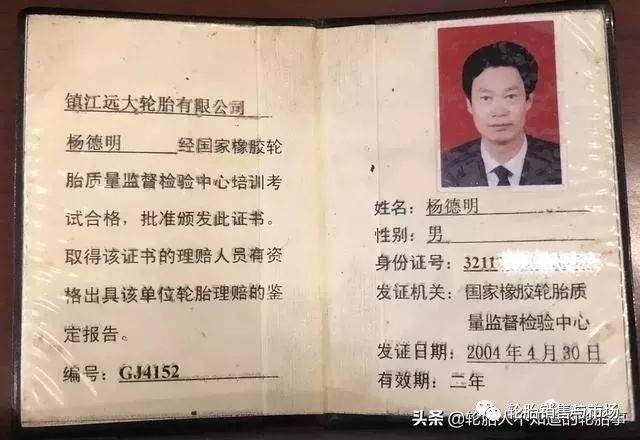 镇江远大轮胎有限公司
杨德明 经国家橡胶轮
胎质量监督检验中心培训考
试合格，批准颁发此证书。
取得该证书的理赔人员有资
格出具该单位轮胎理赔的鉴
定报告。
编号：GJ4152
姓名：杨德明
性别：男
身份证号：3211
发证机关：国家橡胶轮胎质
量监督检验中心
发证日期：2004年4月30日
有效期：二年
轮胎销售与市场
头条@轮胎人不知道的轮胎事